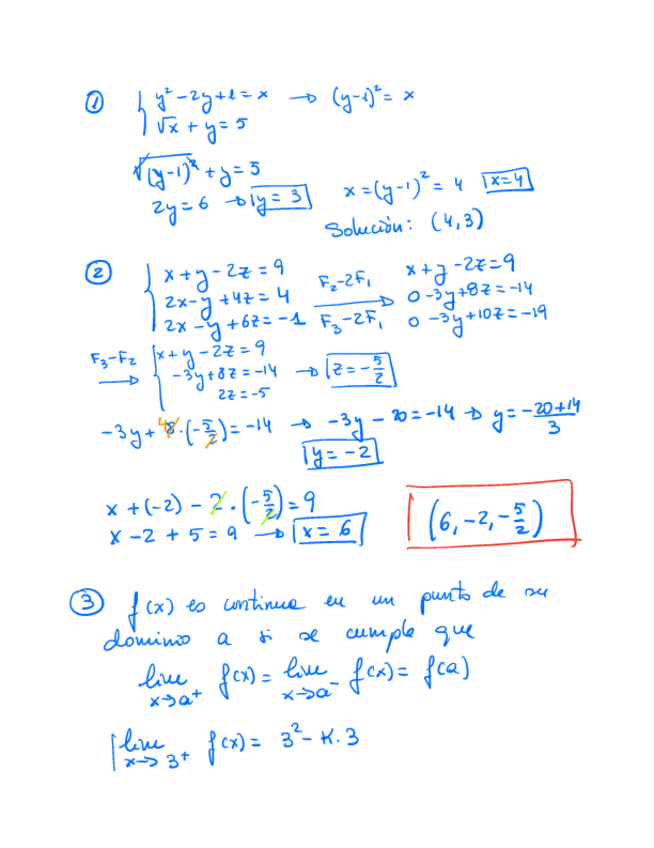 ① { y² - 2y + 1 = x → (y-1)² = x
√x + y = 5
√(y-1)² + y = 5
2y = 6 → y = 3 x = (y-1)² = 4 x = 4
Solución: (4,3)
② { x + y - 2z = 9 F₂-2F₁ x + y - 2z = 9
2x - y + 4z = 4 → 0 - 3y + 8z = -14
2x - y + 6z = -1 F₃-2F₁ 0 - 3y + 10z = -19
F₃-F₂ → { x + y - 2z = 9
-3y + 8z = -14 → z = -5/2
2z = -5
-3y + 8·(-5/2) = -14 → -3y - 20 = -14 → y = (-20+14)/3
4
y = -2
x + (-2) - 2·(-5/2) = 9
x - 2 + 5 = 9 → x = 6 (6, -2, -5/2)
③ f(x) es continua en un punto de su
dominio a si se cumple que
lim x→a⁺ f(x) = lim x→a⁻ f(x) = f(a)
lim x→3⁺ f(x) = 3² - K·3